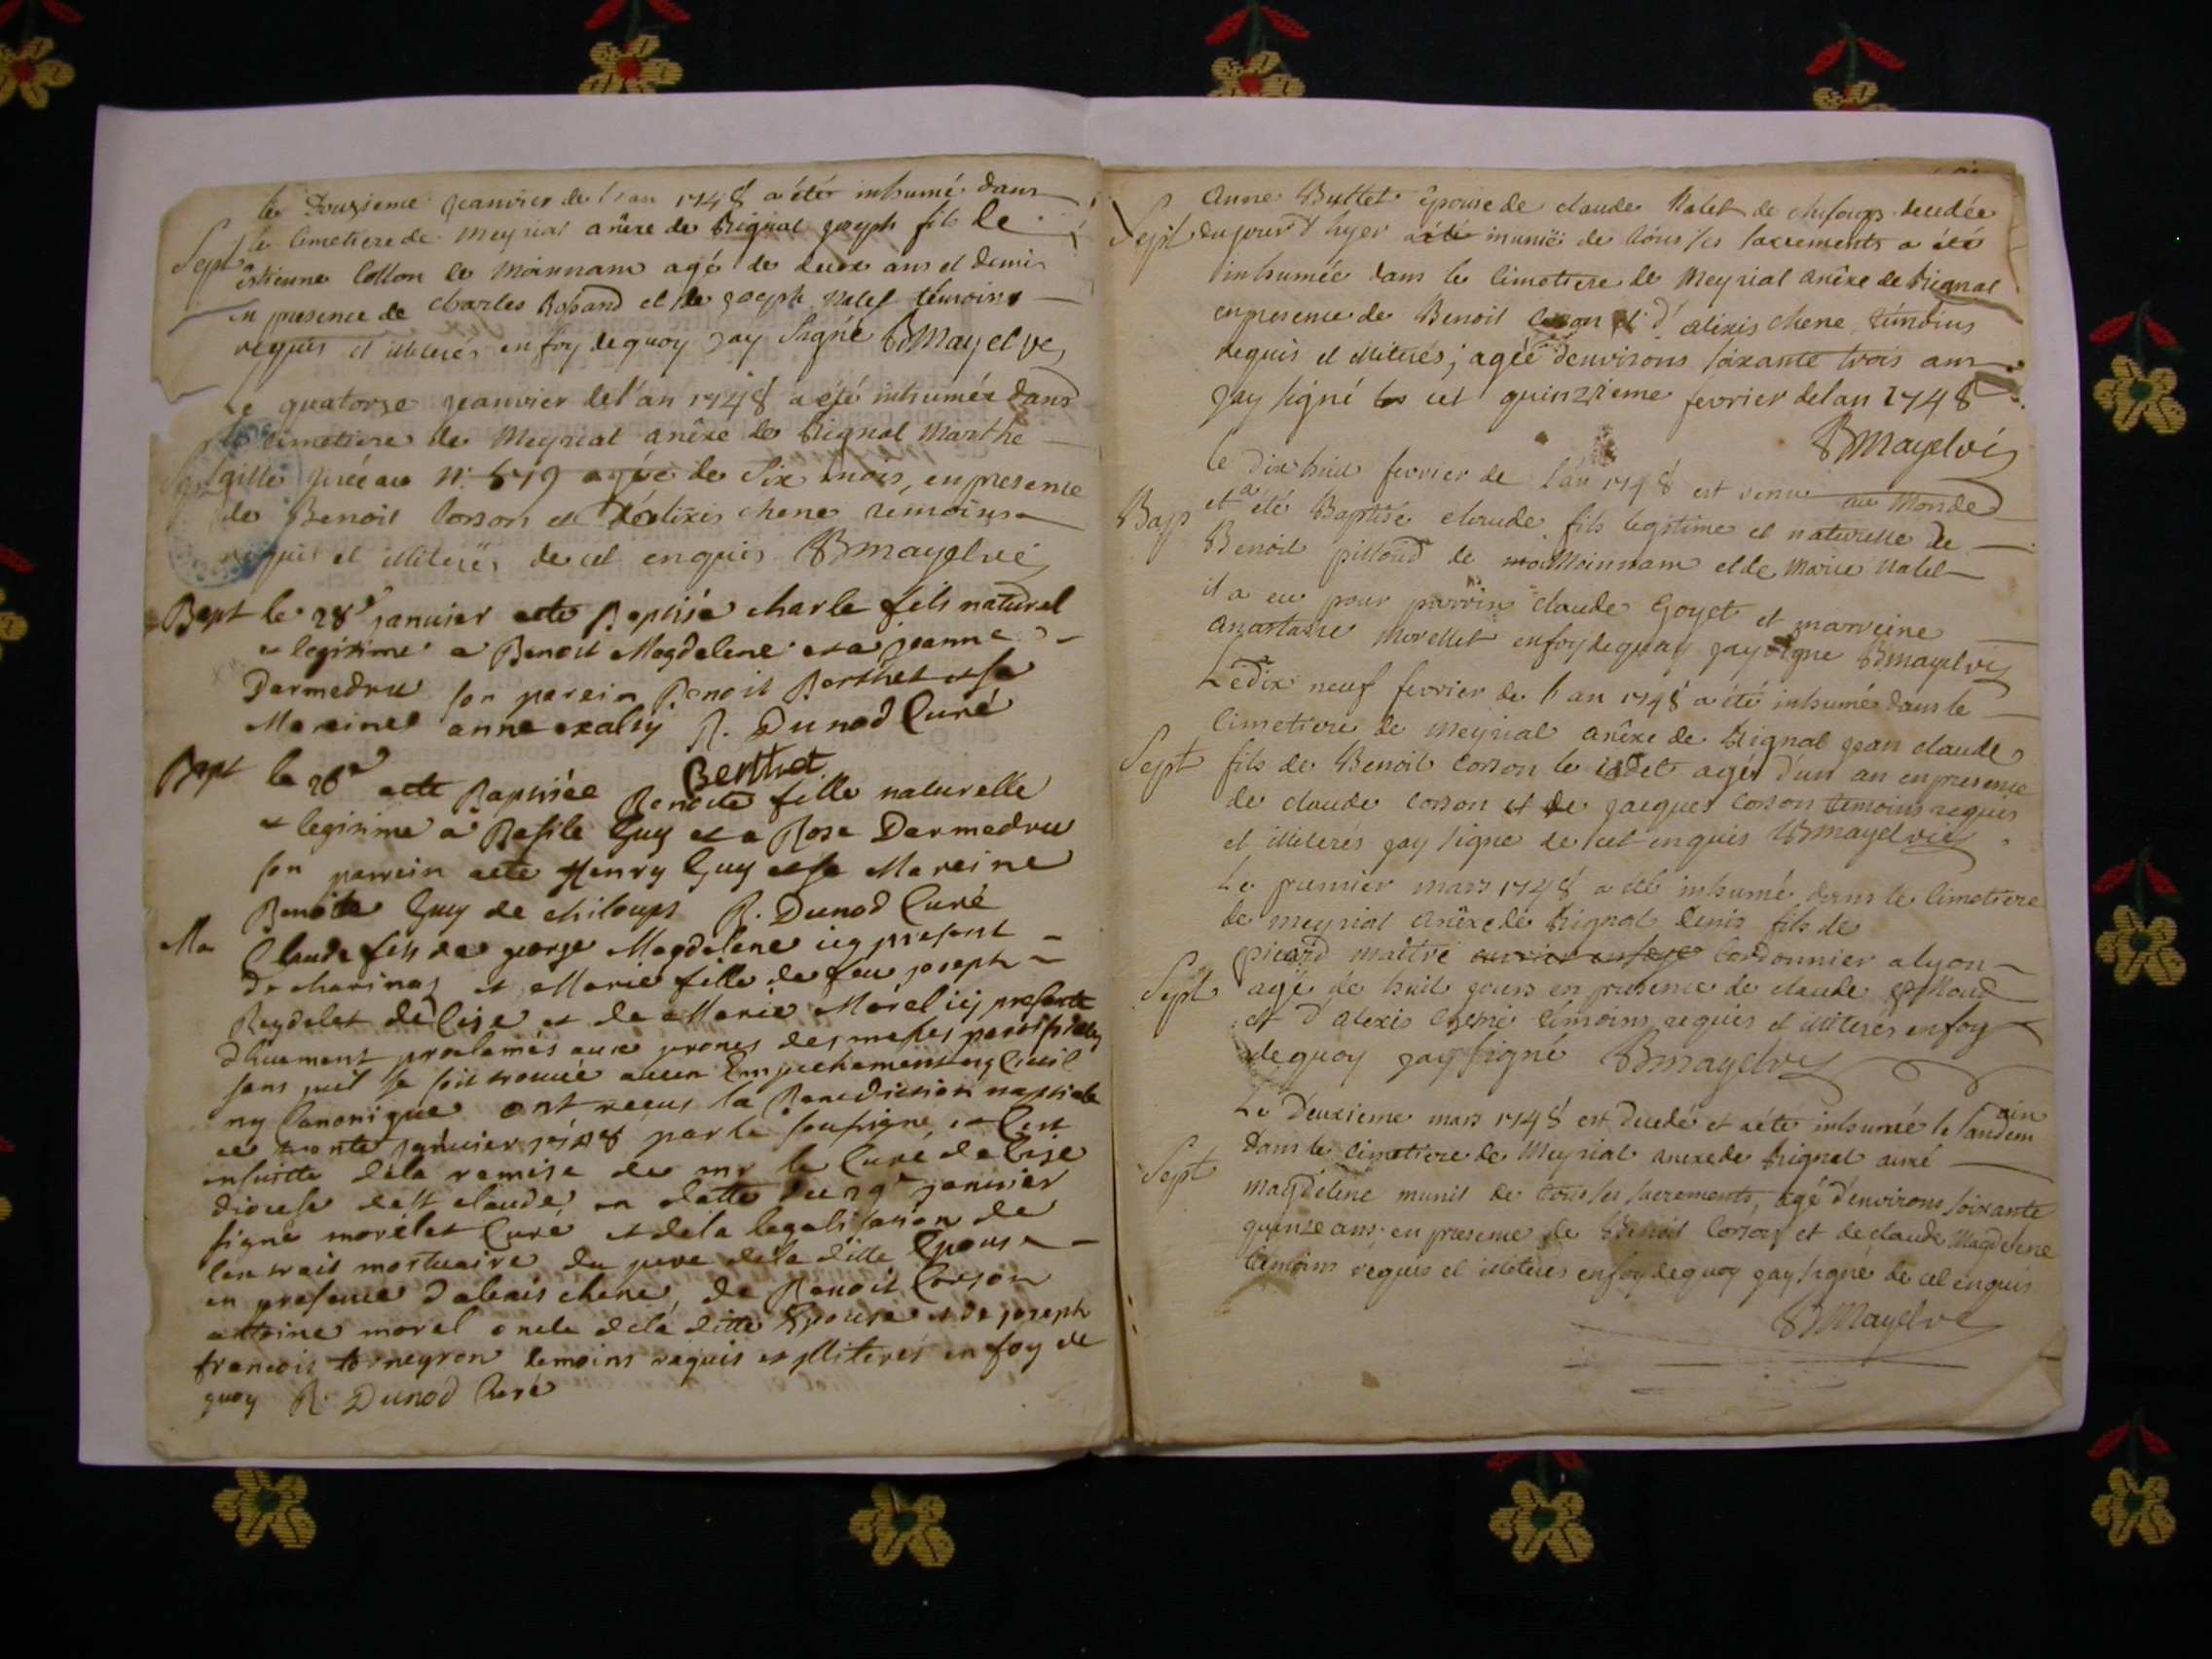 le Douzieme jeanvier de l'an 1748 a été inhumé dans
Sept le cimetiere de Meyriat anêxe de Rignat joseph fils de
estienne Colton de Moinnam agé de deux ans et demi
en presence de charles Roband et de joseph Nalet temoins
requis et illiterés en foy dequoy jay Signé BMayet vé
Le quatorze jeanvier del'an 1748 a été inhumée dans
le cimetiere de Meyriat anêxe de Rignat Marthe
Sept gille N: 519 agée de Six mois, en presence
de Benoit Corson et d'alixis chene temoins
requis et illiterés de cet enquis BMayet vé
Bapt le 28e janvier aeté Baptisé charle fils naturel
et legitime a Benoit Magdelene et a jeanne
Darmedru son parein Benoit Berthet et sa
Mareine anne R. Dunod Curé
Berthet
Bapt le 28e aeté Baptisée Benoite fille naturelle
et legitime a Basile Guy et a Rose Darmedru
son parrein aeté Henry Guy et sa Mareine
Benoite Guy de chiloups R. Dunod Curé
Ma Claude fils de george Magdelene icy present
de charinas et Marie fille de feu joseph
Reydelet de Cize et de Marie Morel icy presente
dhuement proclamés aux prones des messes paroissiales
sans quil se soit trouvé aucun Empechement ny Civil
ny Canonique ont reçus la Benediction nuptiale
ce trente janvier 1748 par le soussigné et C'est
ensuitte dela remise de mr le Curé de Cize
diocese de st claude en datte du 29e janvier
signé morélet Curé et dela legalisation de
lextrait mortuaire du pere dela ditte Epouse
en presence d'alexis chene, de Benoit Corson
antoine morel oncle dela ditte Epouse et de joseph
francois torneyron temoins requis et illiterés en foy de
quoy R. Dunod Curé
Anne Buttet épouse de claude Nalet de chiloups decedée
Sept du jour d'hyer a été munië de tous ses sacrements a été
inhumée dans le cimetiere de Meyriat anêxe de Rignat
en presence de Benoit Corson et d'alexis chene témoins
requis et illiterés; agée denvirons soixante trois ans
jay signé cet quinzieme fevrier del an 1748
BMayet vé
le Dix huit fevrier de l'an 1748 est venu au Monde
Bap et a été Baptisé claude fils legitime et naturelle de
Benoit pilloud de Moinnam et de Marie Nalet
il a eu pour parrin claude Goyet et marreine
anastasie Morellet en foy dequoy jay signe BMayet vé
Le dix neuf fevrier de l'an 1748 a été inhumé dans le
cimetiere de Meyriat anêxe de Rignat jean claude
Sept fils de Benoit Corson le cadet agé d'un an en presence
de claude Corson et de jacques Corson temoins requis
et illiterés jay signe de cet enquis BMayet vé
Le premier mars 1748 a été inhumé dans le cimetiere
de Meyriat anêxe de Rignat Denis fils de
picard maître Cordonnier a lyon
Sept agé de huit jours en presence de claude pilloud
et d'alexis chene temoins requis et illiterés en foy
dequoy jay signé BMayet vé
Le Deuxieme mars 1748 est decedé et a été inhumé le landemain
Sept dans le cimetiere de Meyriat anexe de Rignat aimé
magdelene munit de tous ses sacrements, agé d'environs soixante
quinze ans; en presence de Benoit Corson et de claude Magdelene
temoins requis et illiterés en foy dequoy jay signé de cet enquis
BMayet vé